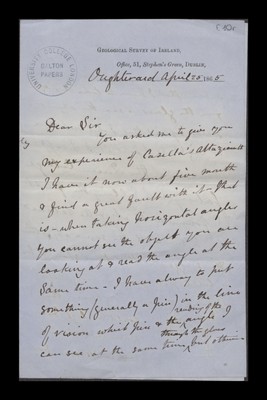 GEOLOGICAL SURVEY OF IRELAND,
Office, 51, Stephen's Green, DUBLIN,
Oughterard April 28 1865
UNIVERSITY COLLEGE LONDON
GALTON
PAPERS
Dear Sir
You asked me to give you
my experience of Casella's Altazimuth
I have it now about five month
& find a great fault with it - that
is - when taking horizontal angles
you cannot see the object you are
looking at & read the angle at the
Same time - I have alway to put
something (generally a pin) in the line
of vision which pin & the reading of the angle I
through the glass
can see at the same time, but